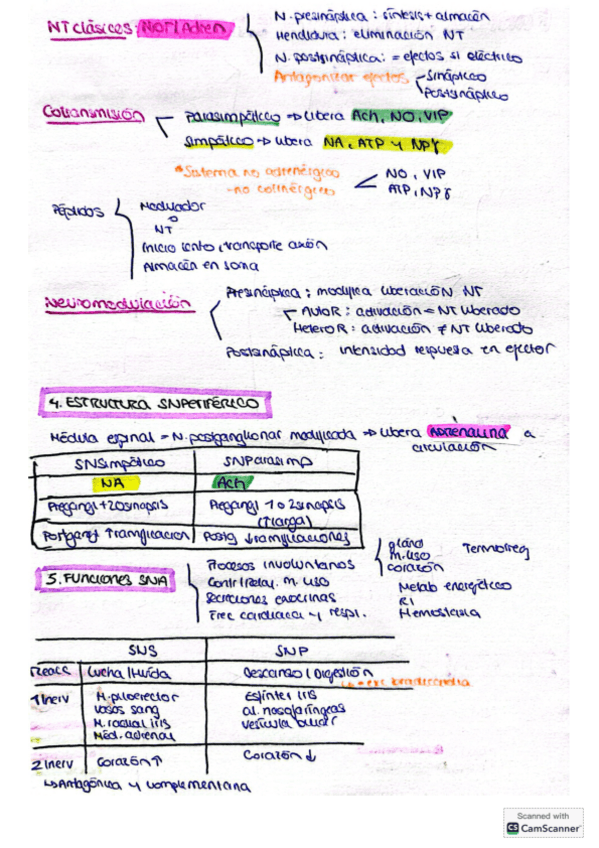 N. presináptica: síntesis + almacén
NT clásicos: Hendidura: eliminación NT
N. postsináptica: = efectos si eléctrico
Antagonizar efectos Sináptico
Postsináptico
Cotransmisión Parasimpático => libera Ach, NO, VIP
Simpático => libera NA, ATP y NPY
*Sistema no adrenérgico NO, VIP
-no colinérgico ATP, NPY
Péptidos Modulador
o
NT
Inicio lento, transporte axón
Almacén en soma
Neuromodulación Presináptica: modifica liberación NT
AutoR: activación = NT liberado
HeteroR: activación ≠ NT liberado
Postsináptica: intensidad respuesta en efector
4. ESTRUCTURA SNPERIFÉRICO
Médula espinal = N. postganglionar modificada => libera ADRENALINA a
circulación
SNSimpático SNParasimp
NA Ach
Pregangl +20sinapsis Pregangl 1 o 2 sinapsis
(↑larga)
Postgangl ↑ramificacion Postg ↓ramificaciones
5. FUNCIONES SNA Procesos involuntarios
Contr/Relaj. m. liso
Secreciones exocrinas
Frec cardiaca y respi.
gland
m. liso Termoreg
corazón
Metab energético
RI
Hemostasia
SNS SNP
Reacc Lucha/Huída Descanso/Digestión
↳ exc bradicardia
1 Inerv M. piloerector Esfínter iris
vasos sang Gl. nasofaríngeas
M. radial iris vesícula biliar
Méd. adrenal
2 Inerv Corazón ↑ Corazón ↓
↳ Antagónica y complementaria
Scanned with
CS CamScanner